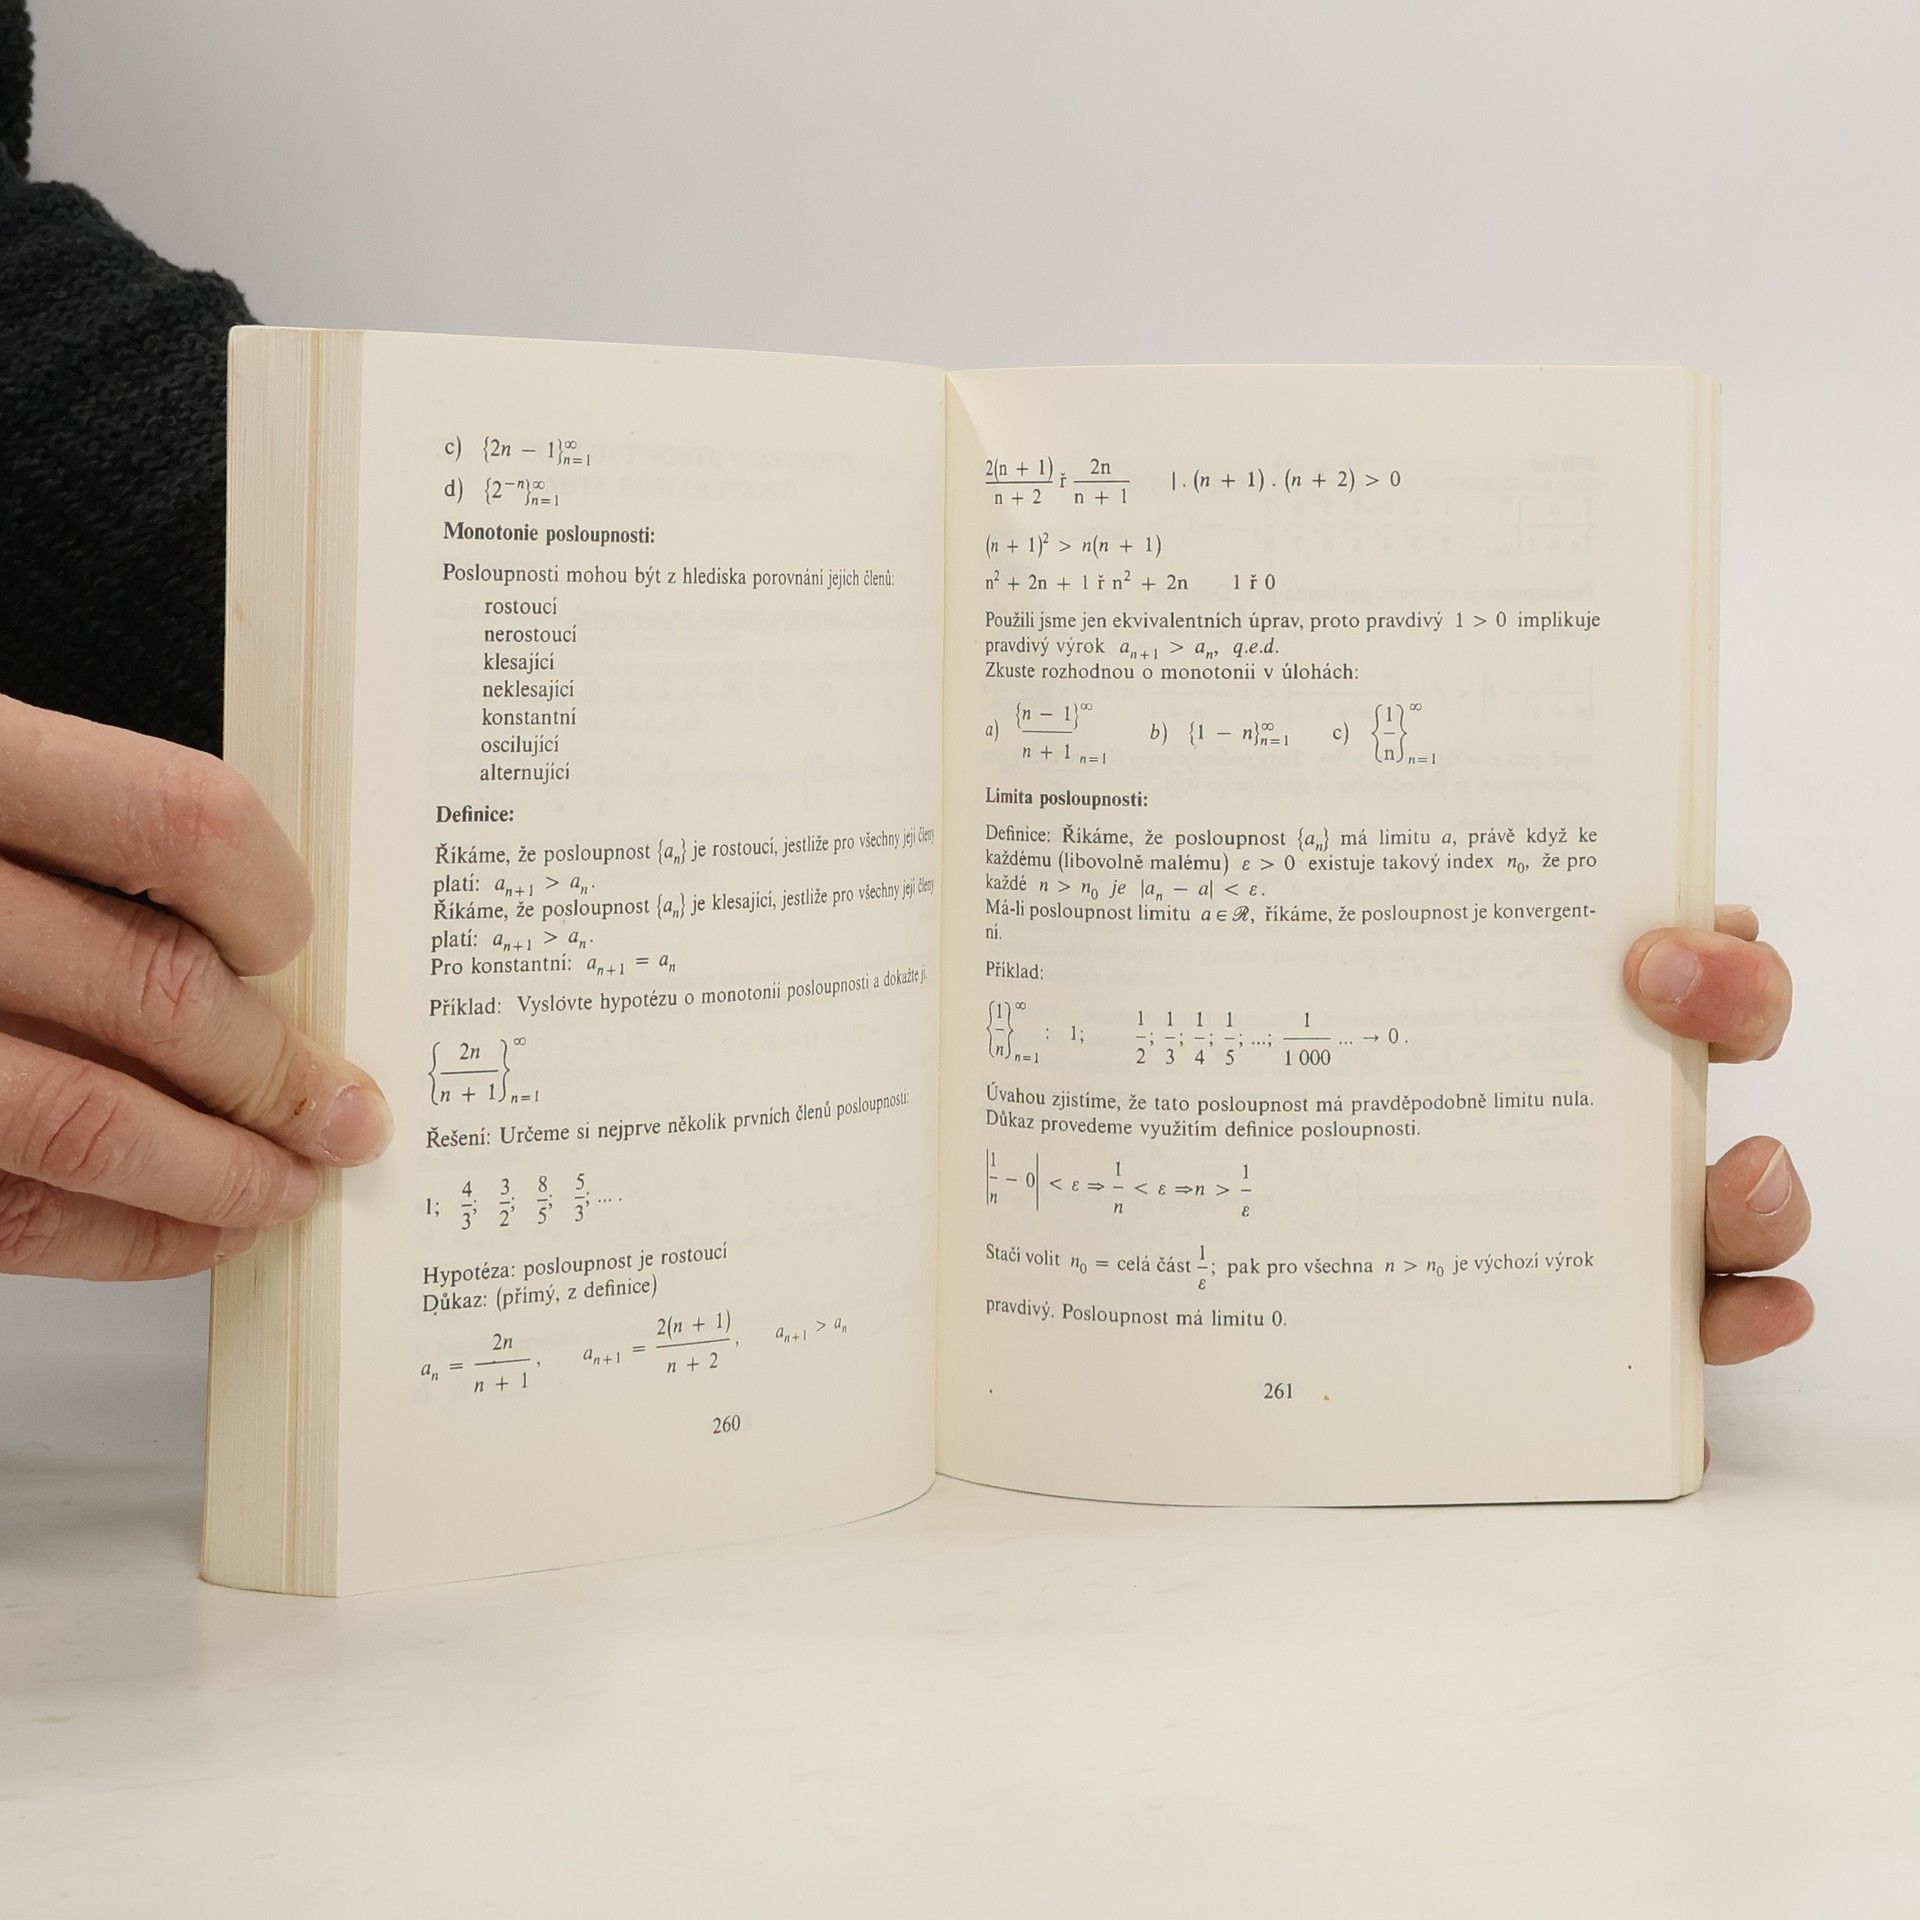 c) {2n − 1}∞n=1
d) {2−n}∞n=1
Monotonie posloupnosti:
Posloupnosti mohou být z hlediska porovnání jejich členů:
rostoucí
nerostoucí
klesající
neklesající
konstantní
oscilující
alternující
Definice:
Říkáme, že posloupnost {an} je rostoucí, jestliže pro všechny její členy
platí: an+1 > an.
Říkáme, že posloupnost {an} je klesající, jestliže pro všechny její členy
platí: an+1 > an.
Pro konstantní: an+1 = an
Příklad: Vyslovte hypotézu o monotonii posloupnosti a dokažte ji.
{2n/(n + 1)}∞n=1
Řešení: Určeme si nejprve několik prvních členů posloupnosti:
1; 4/3; 3/2; 8/5; 5/3; ... .
Hypotéza: posloupnost je rostoucí
Důkaz: (přímý, z definice)
an = 2n/(n + 1), an+1 = 2(n + 1)/(n + 2), an+1 > an
260
2(n + 1)/(n + 2) ř 2n/(n + 1) | . (n + 1) . (n + 2) > 0
(n + 1)² > n(n + 1)
n² + 2n + 1 ř n² + 2n 1 ř 0
Použili jsme jen ekvivalentních úprav, proto pravdivý 1 > 0 implikuje
pravdivý výrok an+1 > an, q.e.d.
Zkuste rozhodnou o monotonii v úlohách:
a) {n − 1}∞/n + 1 n=1 b) {1 − n}∞n=1 c) {1/n}∞n=1
Limita posloupnosti:
Definice: Říkáme, že posloupnost {an} má limitu a, právě když ke
každému (libovolně malému) ε > 0 existuje takový index n0, že pro
každé n > n0 je |an − a| < ε.
Má-li posloupnost limitu a ∈ ℛ, říkáme, že posloupnost je konvergent-
ní.
Příklad:
{1/n}∞n=1 : 1; 1/2; 1/3; 1/4; 1/5; ...; 1/1 000 ... → 0 .
Úvahou zjistíme, že tato posloupnost má pravděpodobně limitu nula.
Důkaz provedeme využitím definice posloupnosti.
|1/n − 0| < ε ⇒ 1/n < ε ⇒ n > 1/ε
Stačí volit n0 = celá část 1/ε; pak pro všechna n > n0 je výchozí výrok
pravdivý. Posloupnost má limitu 0.
261